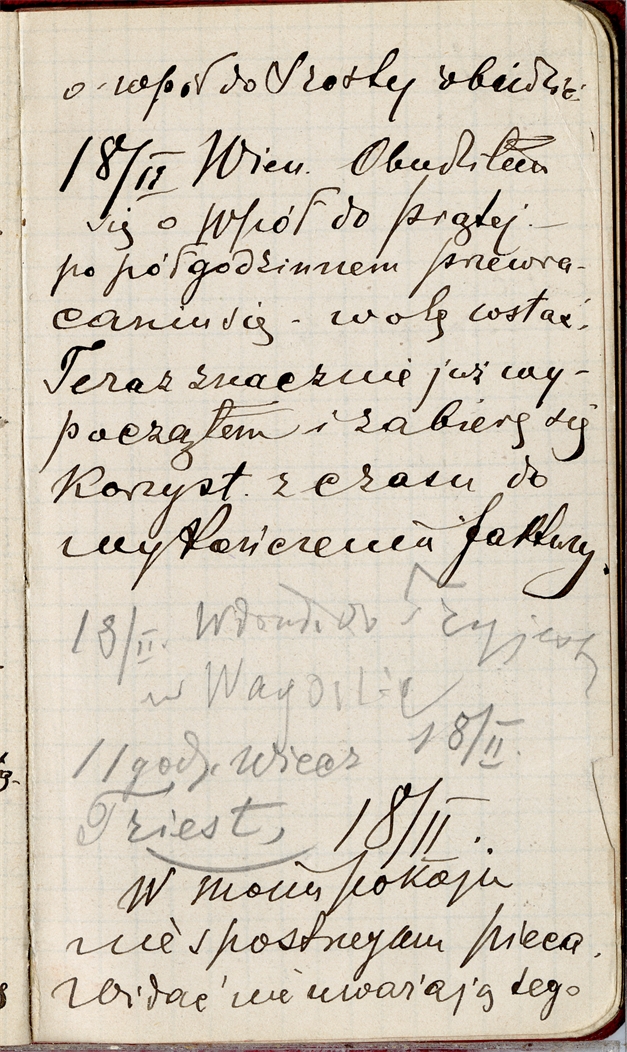 o wpół do szósty obudzić
18/II Wien. Obudziłem
się o wpół do piątej. —
po półgodzinnem przewra-
caniu się - wolę wstać.
Teraz znacznie już wy-
począłem i zabierę się
Korzyst. z czasu do
wykończenia faktury.
18/II. do Tryjestu
w Wagonie
11 godz. wiecz 18/II.
Triest, 18/II.
W moim pokoju
nie spostrzegam pieca.
Widać nie uważają tego